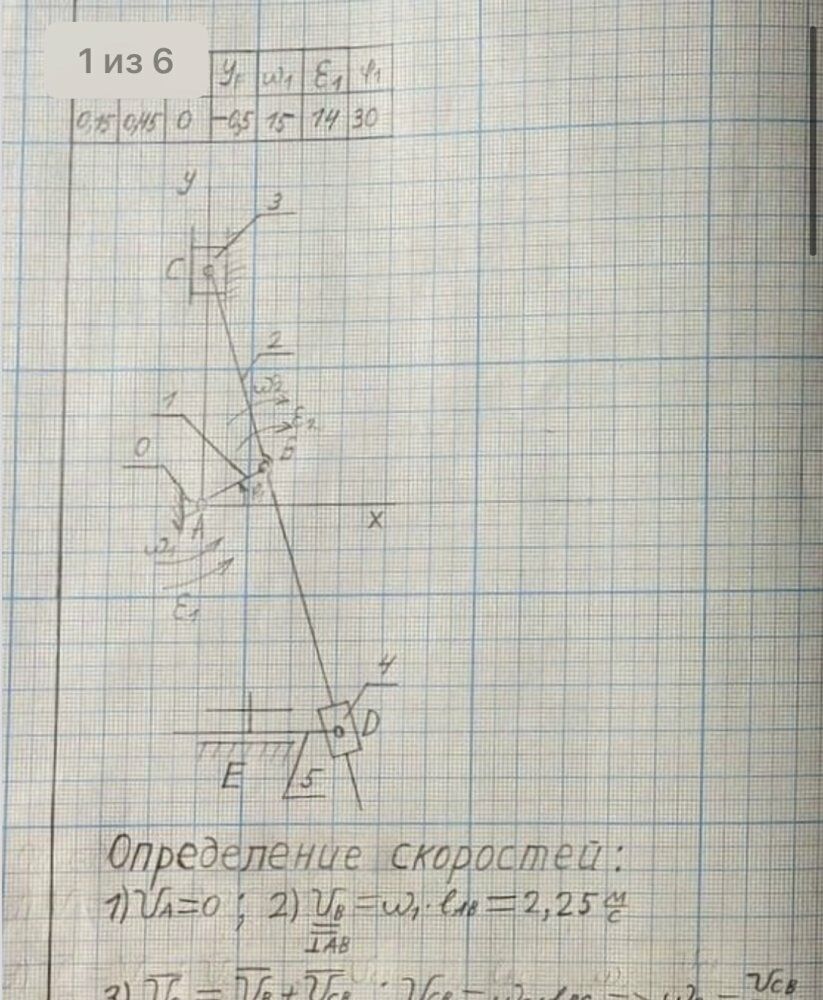 1 из 6
Yᴇ ω₁ ε₁ φ₁
0,15 0,45 0 -0,5 15 14 30
y
3
C
2
ω₂
1
ε₂
B
0
φ₁
A
x
ω₁
ε₁
4
D
E 5
Определение скоростей:
1) V_A=0 ; 2) V_B=ω₁·l_AB=2,25 м/с
⊥AB
3)